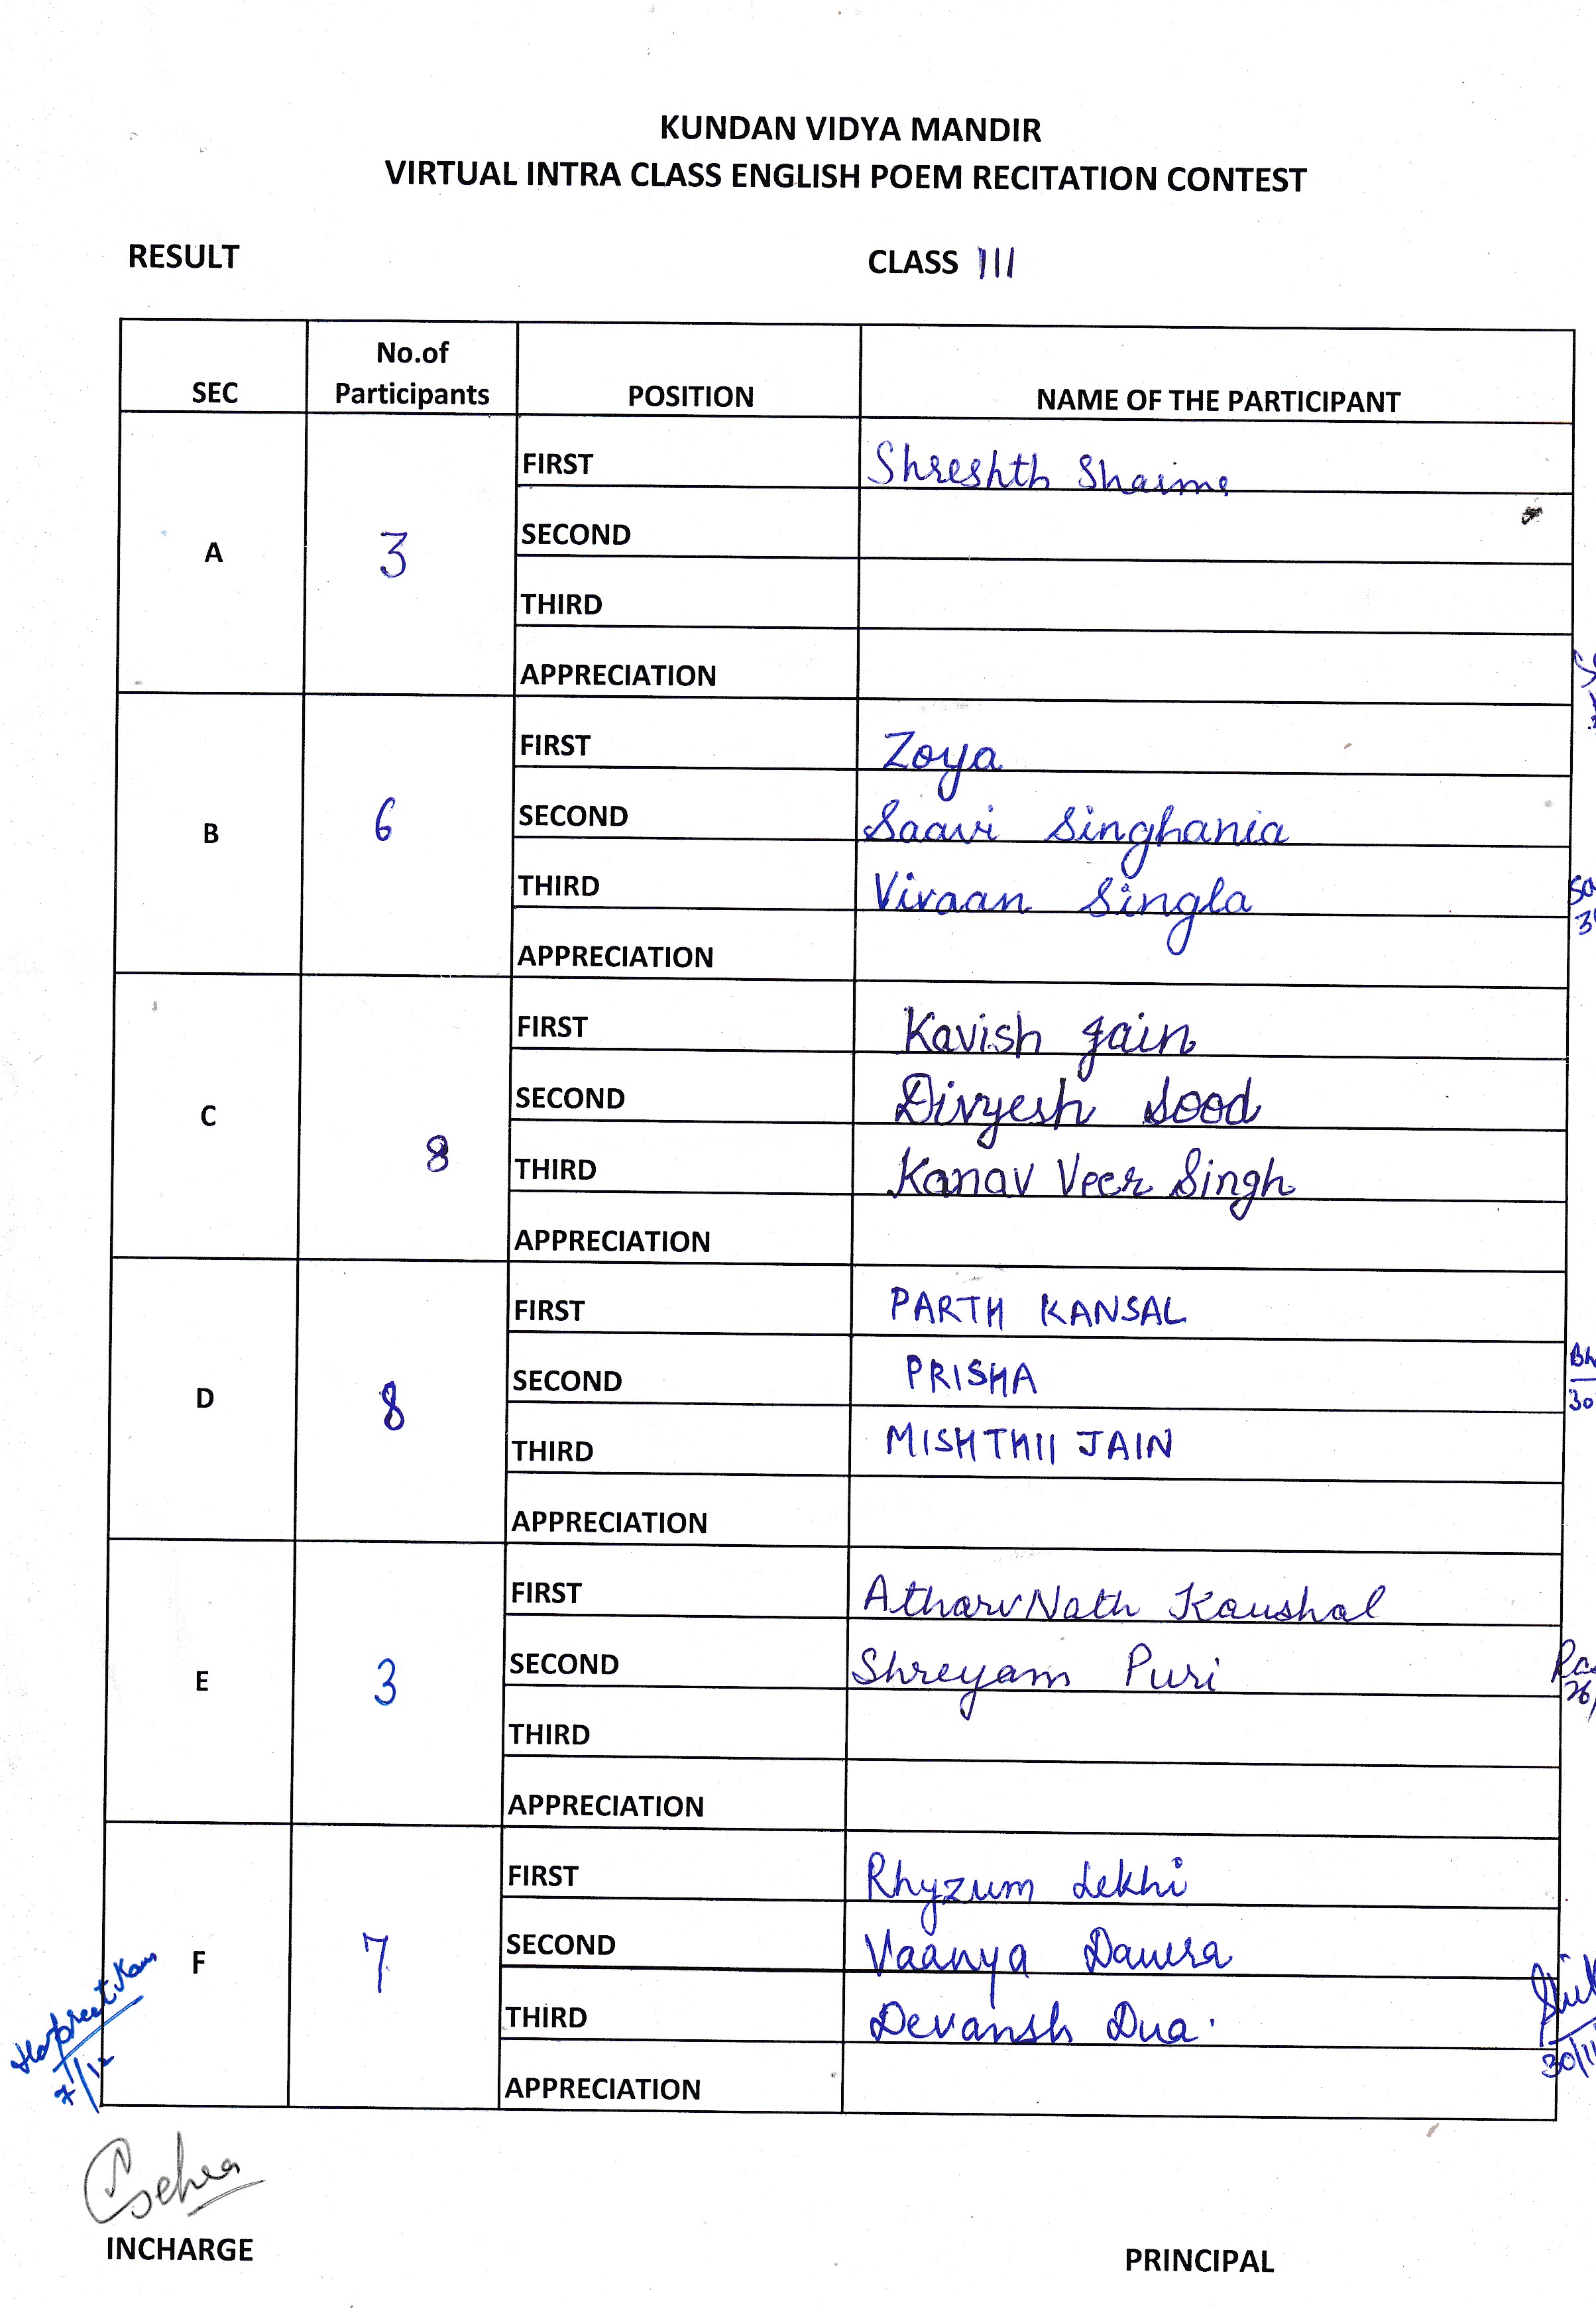 KUNDAN VIDYA MANDIR
VIRTUAL INTRA CLASS ENGLISH POEM RECITATION CONTEST
RESULT CLASS III
SEC No.of Participants POSITION NAME OF THE PARTICIPANT
A 3
FIRST Shreshth Sharma
SECOND
THIRD
APPRECIATION
B 6
FIRST Zoya
SECOND Saavi Singhania
THIRD Vivaan Singla
APPRECIATION
C 8
FIRST Kavish Jain
SECOND Divyesh Sood
THIRD Kanav Veer Singh
APPRECIATION
D 8
FIRST PARTH KANSAL
SECOND PRISHA
THIRD MISHTHII JAIN
APPRECIATION
E 3
FIRST Atharv Nath Kaushal
SECOND Shreyam Puri
THIRD
APPRECIATION
F 7
FIRST Rhyzum Lekhi
SECOND Vaanya Dawra
THIRD Devansh Dua.
APPRECIATION
Harpreet Kaur
7/12
30/11
INCHARGE PRINCIPAL